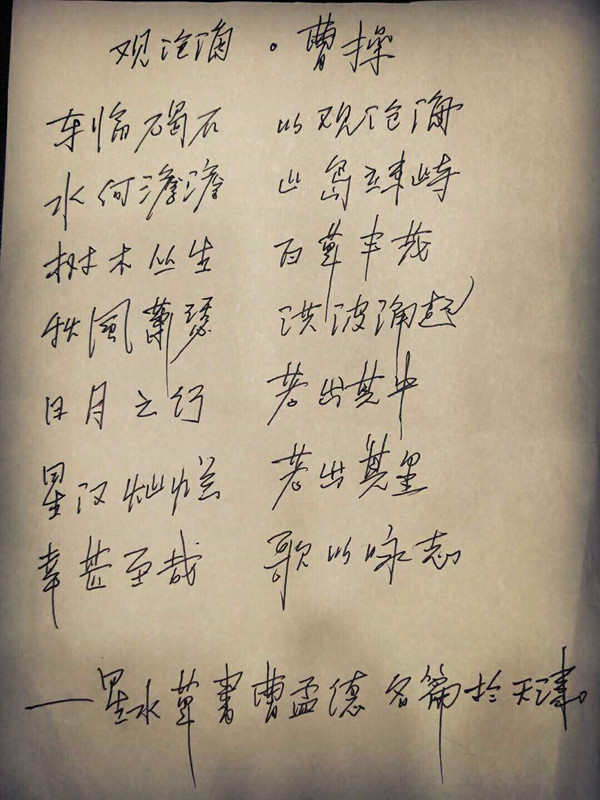 观沧海·曹操
车临碣石 以观沧海
水何澹澹 山岛竦峙
树木丛生 百草丰茂
秋風萧瑟 洪波涌起
日月之行 若出其中
星汉灿烂 若出其里
幸甚至哉 歌以咏志
——星水草書曹孟德名篇於天津。